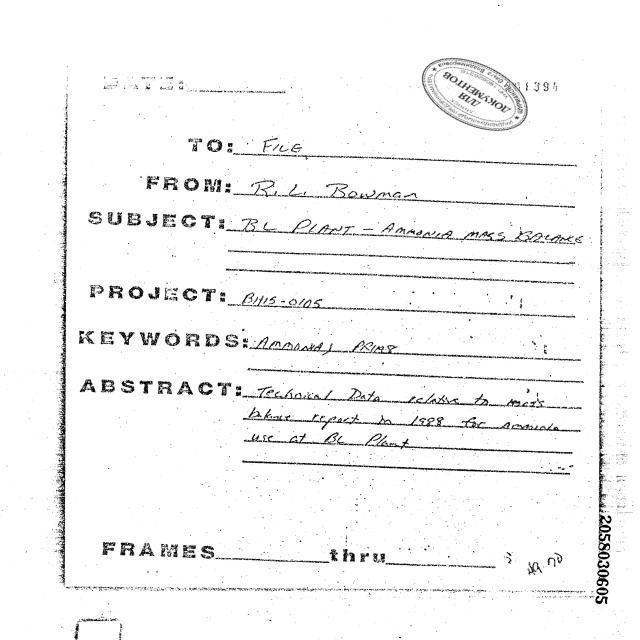 DATE:
1394
ДЛЯ
ДОКУМЕНТОВ
TO: FILE
FROM: R. L. Bowman
SUBJECT: BL PLANT - AMMONIA MASS BALANCE
PROJECT: B1115-0105
KEYWORDS: AMMONIA,
ABSTRACT: Technical Data relative to mass
balance report in 1988 for ammonia
use at BL Plant
FRAMES thru
2058030605